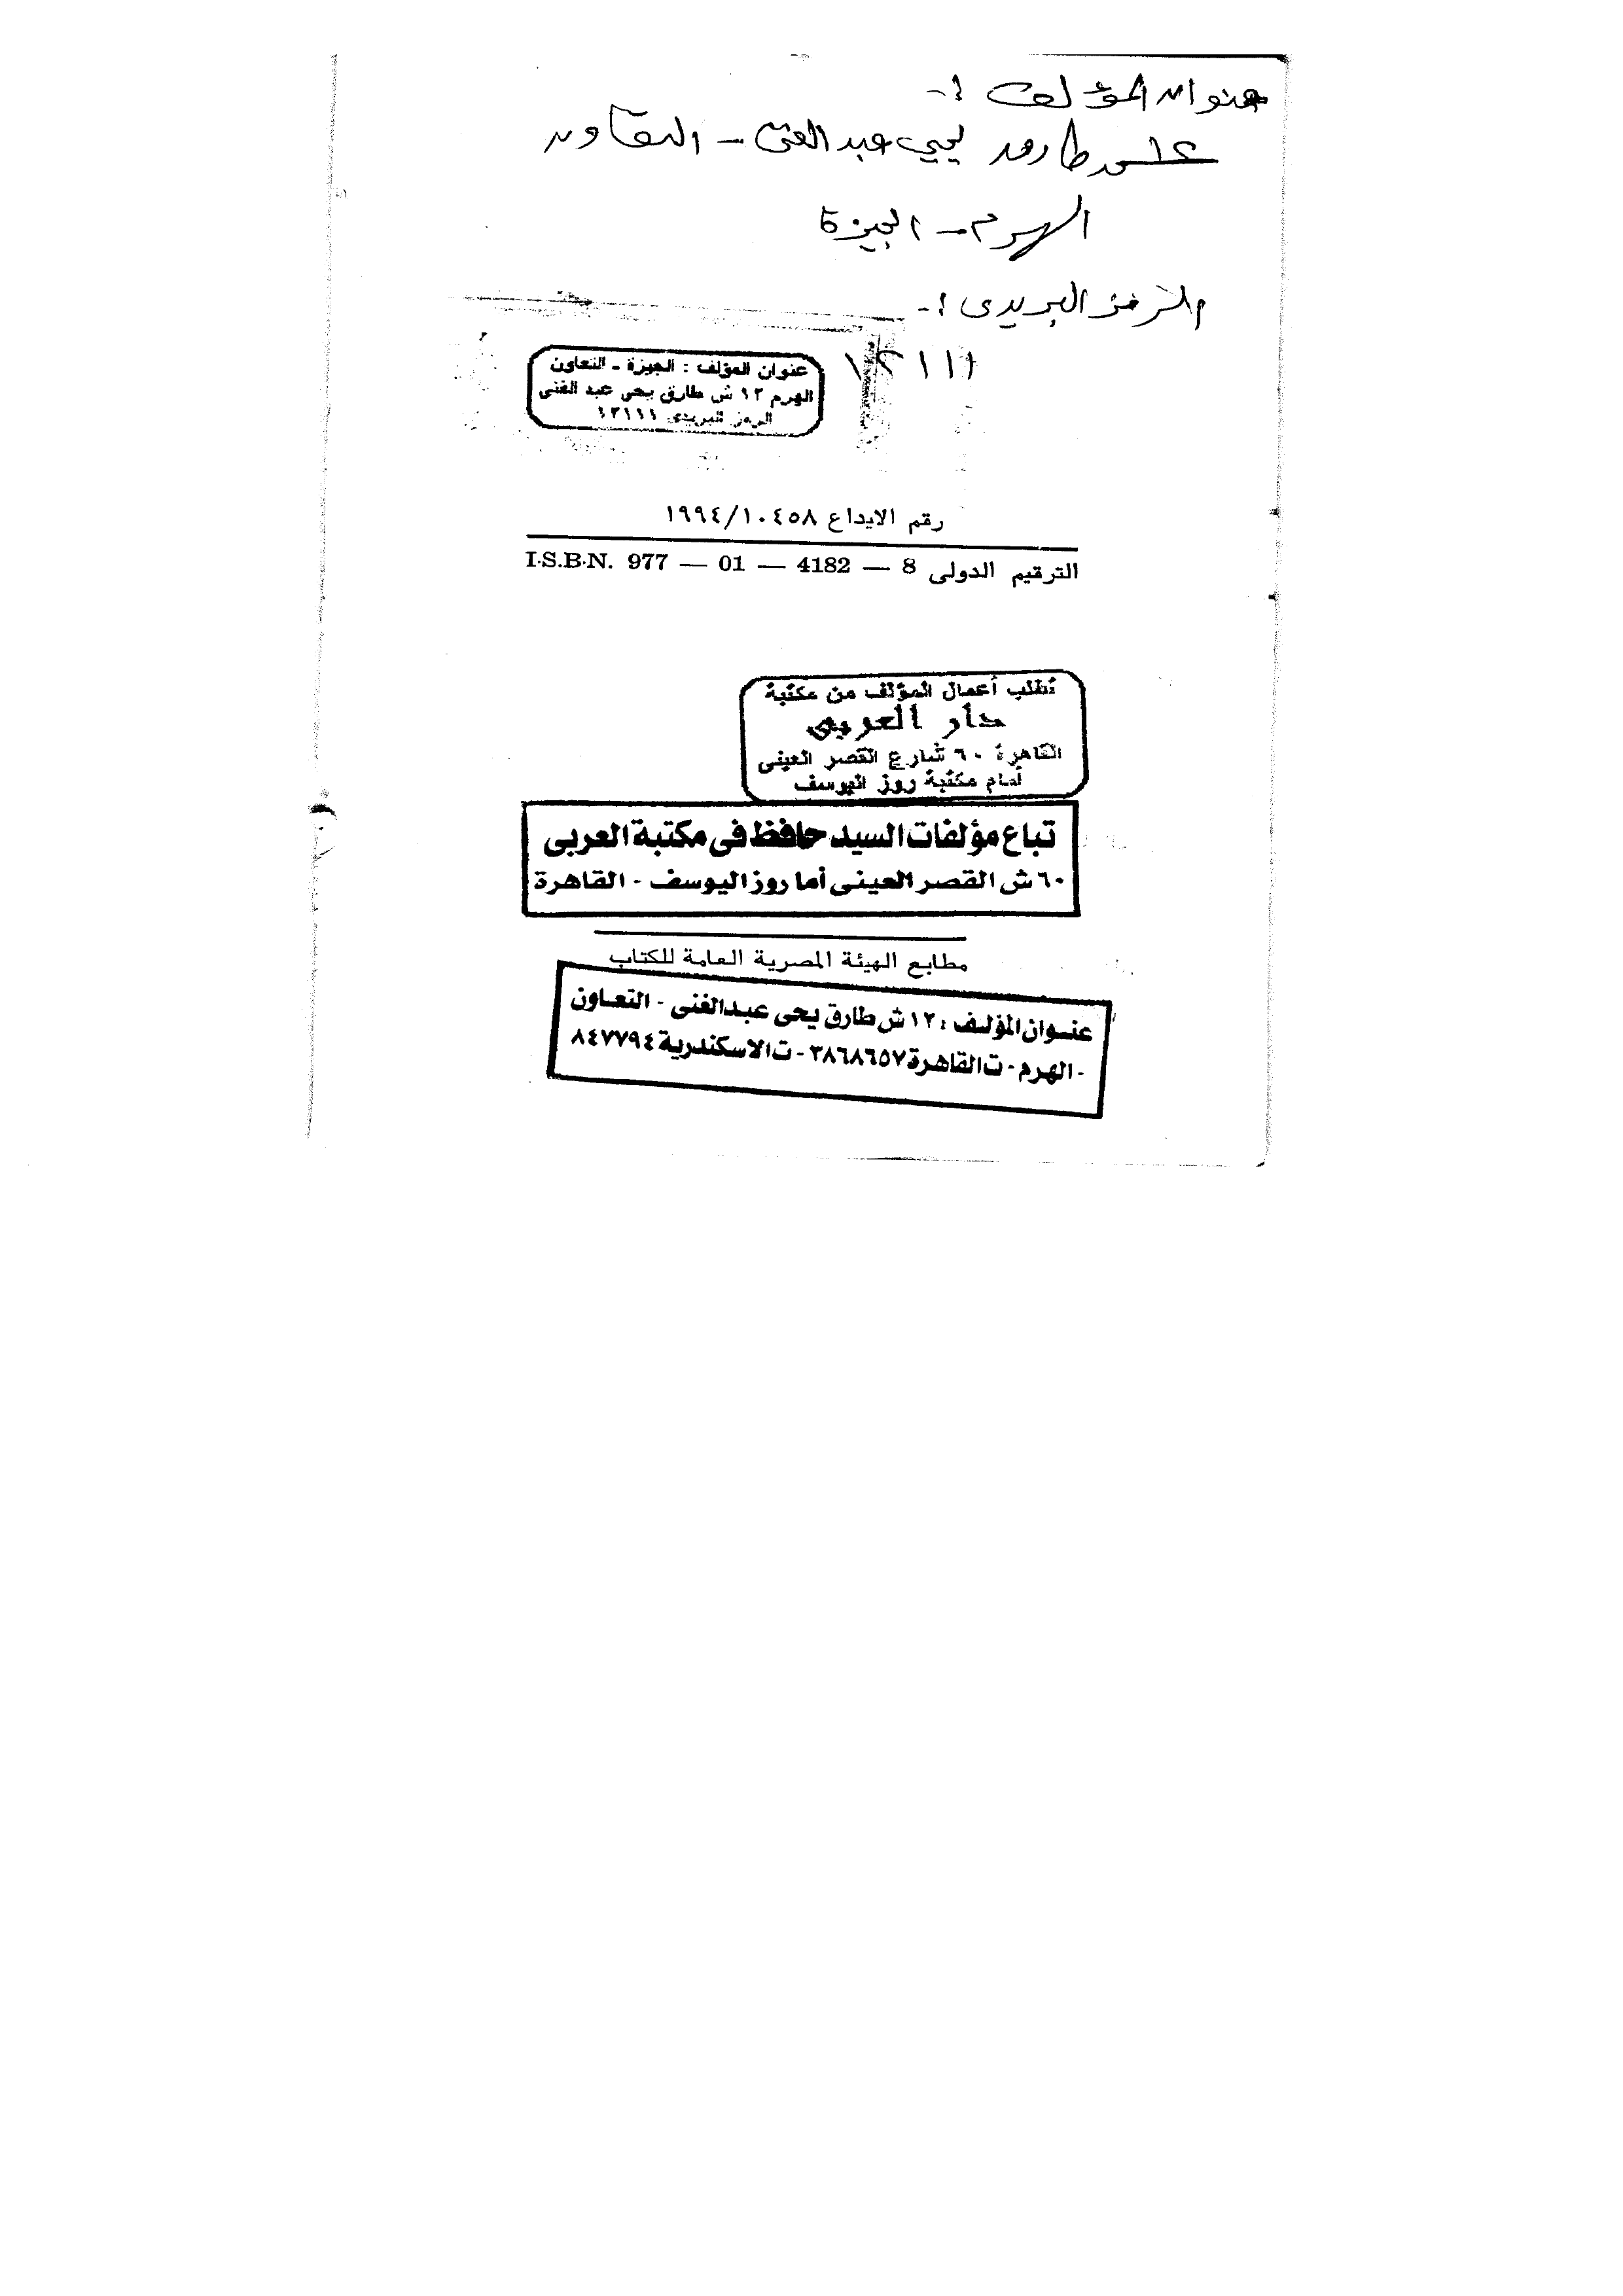 عنوان المؤلف :-
١٢ ش طارق يحيي عبد الغني - التعاون
الهرم - الجيزة
الرمز البريدى :-
١٢١١١
عنوان المؤلف : الجيزة - التعاون
الهرم ١٢ ش طارق يحى عبد الغنى
الرمز البريدى ١٢١١١
رقم الايداع ١٩٩٤/١٠٤٥٨
الترقيم الدولى I.S.B.N. 977 — 01 — 4182 — 8
تطلب أعمال المؤلف من مكتبة
دار العربى
القاهرة ٦٠ شارع القصر العينى
أمام مكتبة روز اليوسف
تباع مؤلفات السيد حافظ فى مكتبة العربى
٦٠ ش القصر العينى أما روز اليوسف - القاهرة
مطابع الهيئة المصرية العامة للكتاب
عنوان المؤلف : ١٢ ش طارق يحى عبد الغنى - التعاون
- الهرم - ت القاهرة ٣٨٦٨٦٥٧ - ت الاسكندرية ٨٤٧٧٩٤